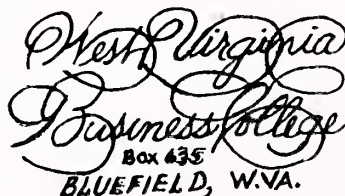 West Virginia
Business College
Box 435
BLUEFIELD, W.VA.